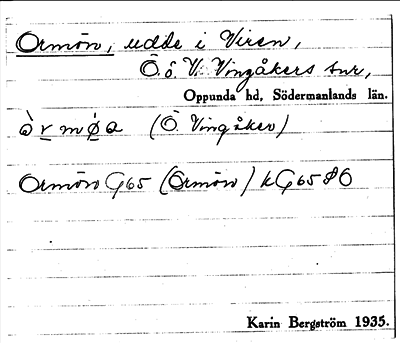 Ormön, udde i Viren,
Ö. o. V. Vingåkers snr,
Oppunda hd, Södermanlands län.
(Ö. Vingåker)
Ormön G65 (Örmön) kG65 80
Karin Bergström 1935.